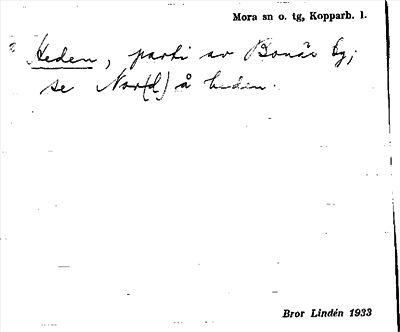 Mora sn o. tg, Kopparb. l.
Heden, parti av Bonäs by,
se Nor(d)åheden.
Bror Lindén 1933